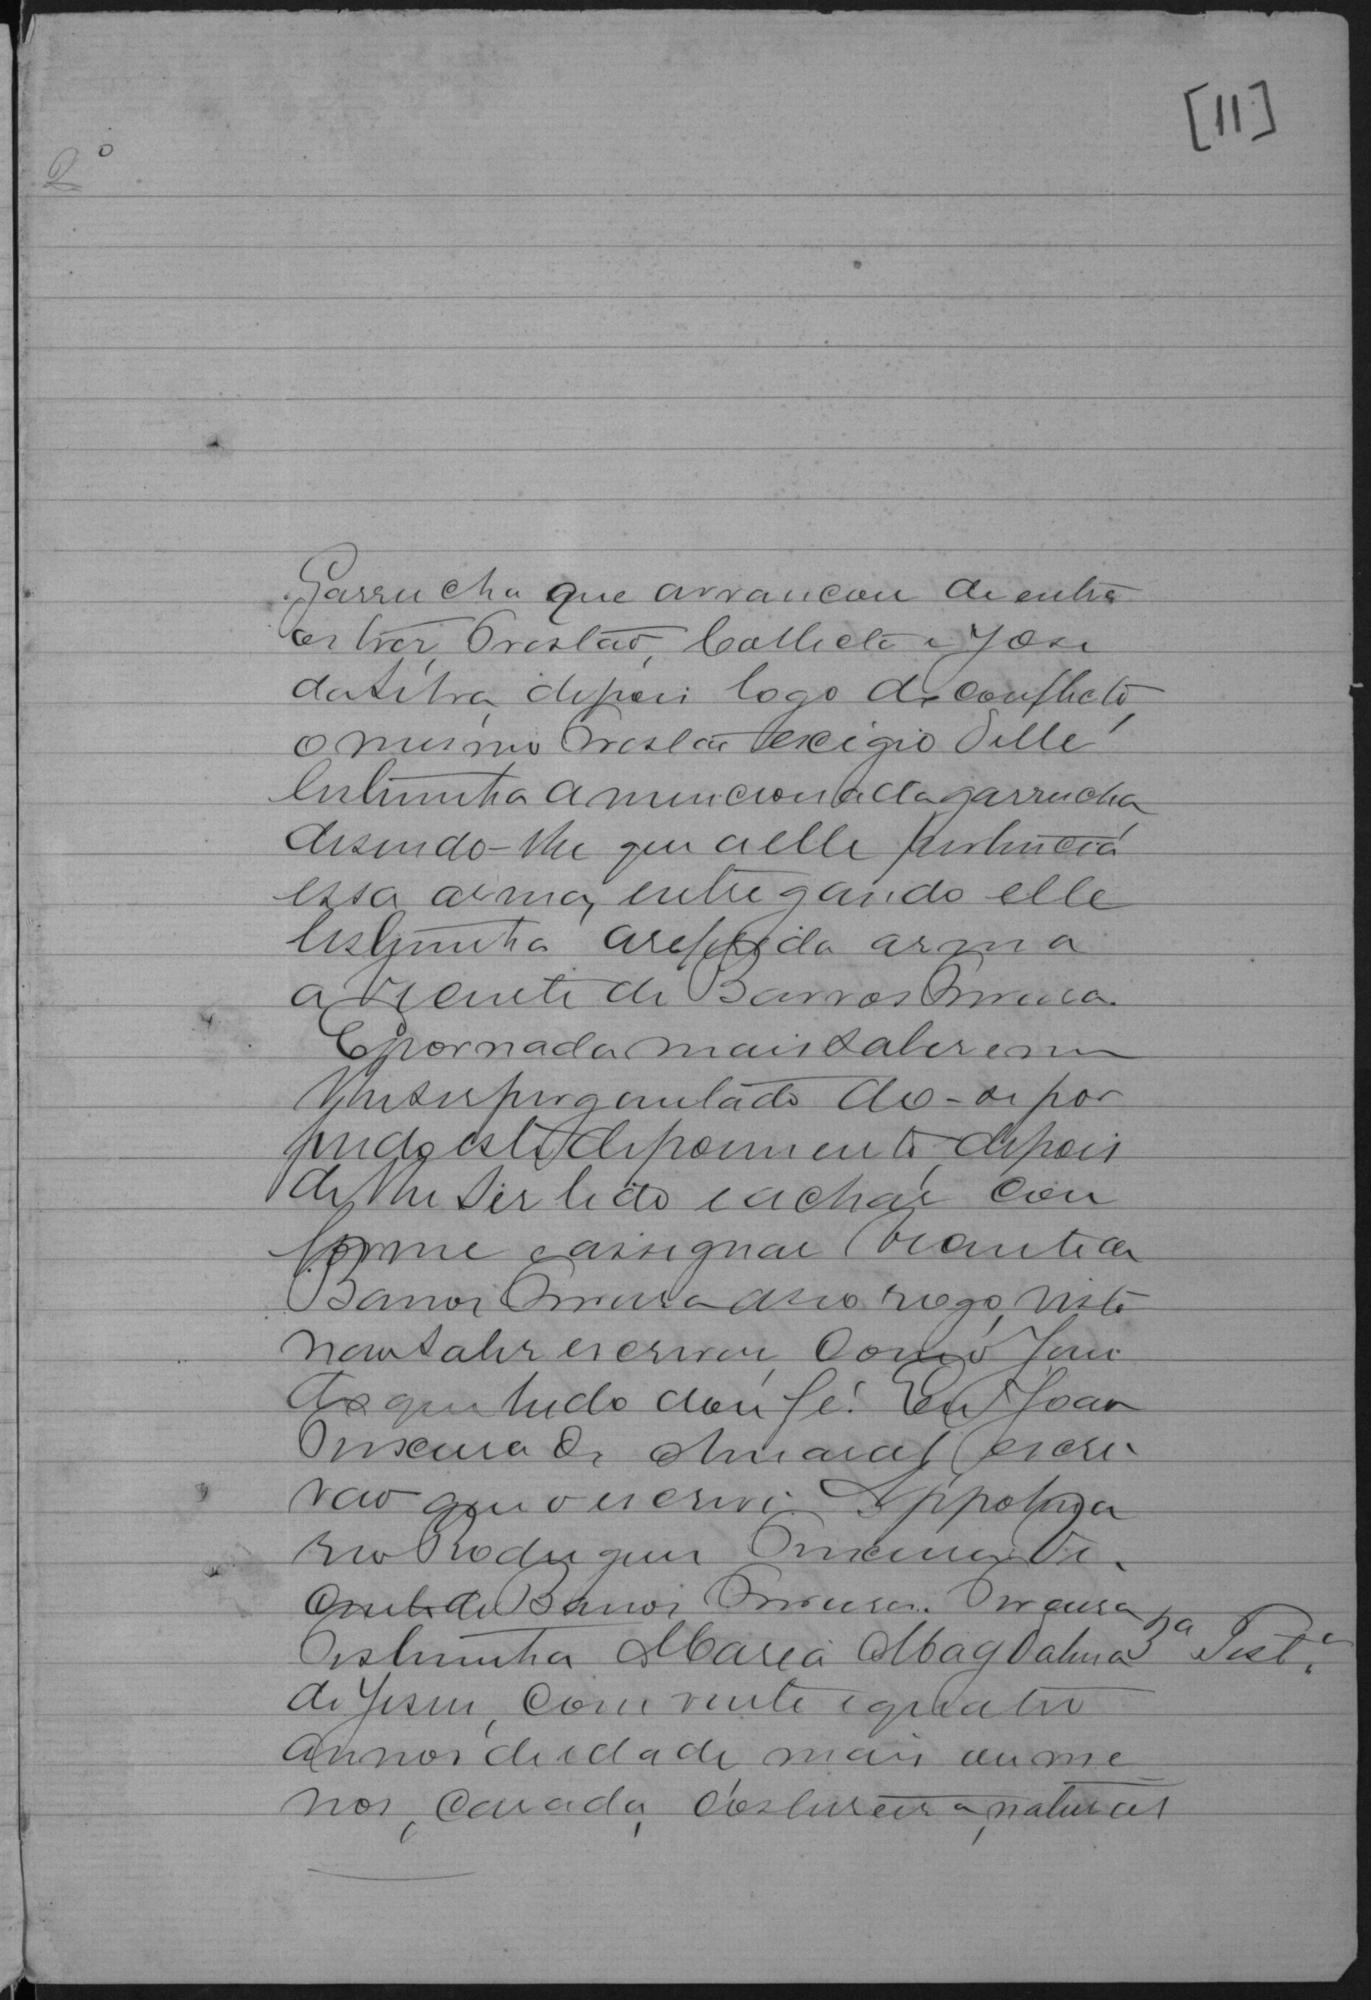 [11]
2º
Garrucha que arrancou de entre
os trez, Tristão, Collecta e José
da Silva, depois logo do conflicto,
o mesmo Tristão exigio delle
testimunha a mencionada garrucha,
disendo-lhe que a elle pertencia
essa arma, entregando elle
testimunha a referida arma
a Vicente de Barros
E por nada mais saber e nem
lhe ser perguntado deo-se por
findo este depoimento, depois
de lhe ser lido e achar con
forme e assigna Vicente de
Barros a seo rogo, visto
nao saber escrever, com o Juiz
do que tudo dou fé. Eu João
Teixeira de Amaral, escri
vão que o escrevi. Hyppolyto
Rodrigues Teixeira. Vi
cente de Barros Terceira
Testimunha Maria Magdalena 3ª Testª
de Jesus, com vinte e quatro
annos de edade mais ou me
nos, casada, costureira, natural